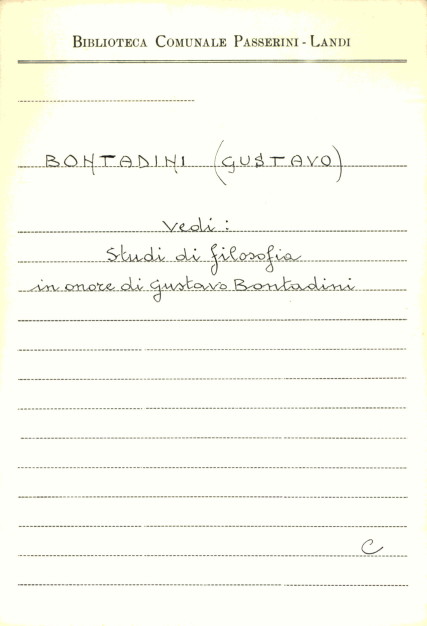 BIBLIOTECA COMUNALE PASSERINI - LANDI
BONTADINI (GUSTAVO)
Vedi:
Studi di filosofia
in onore di Gustavo Bontadini
C